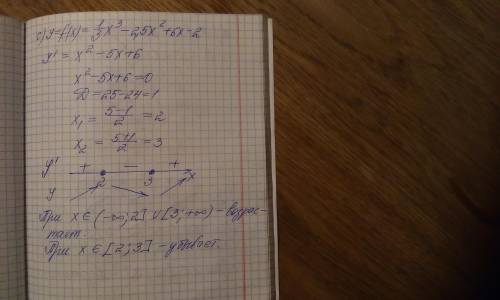 c) y=f(x)=1/3x³-2,5x²+6x-2
y' = x² -5x+6
x²-5x+6=0
D=25-24=1
x₁ = 5-1/2 = 2
x₂ = 5+1/2 = 3
y' + - +
2 3 x
y
При x∈(-∞;2]∪[3;+∞) - возрас-
тает.
При x∈[2;3] - убывает.